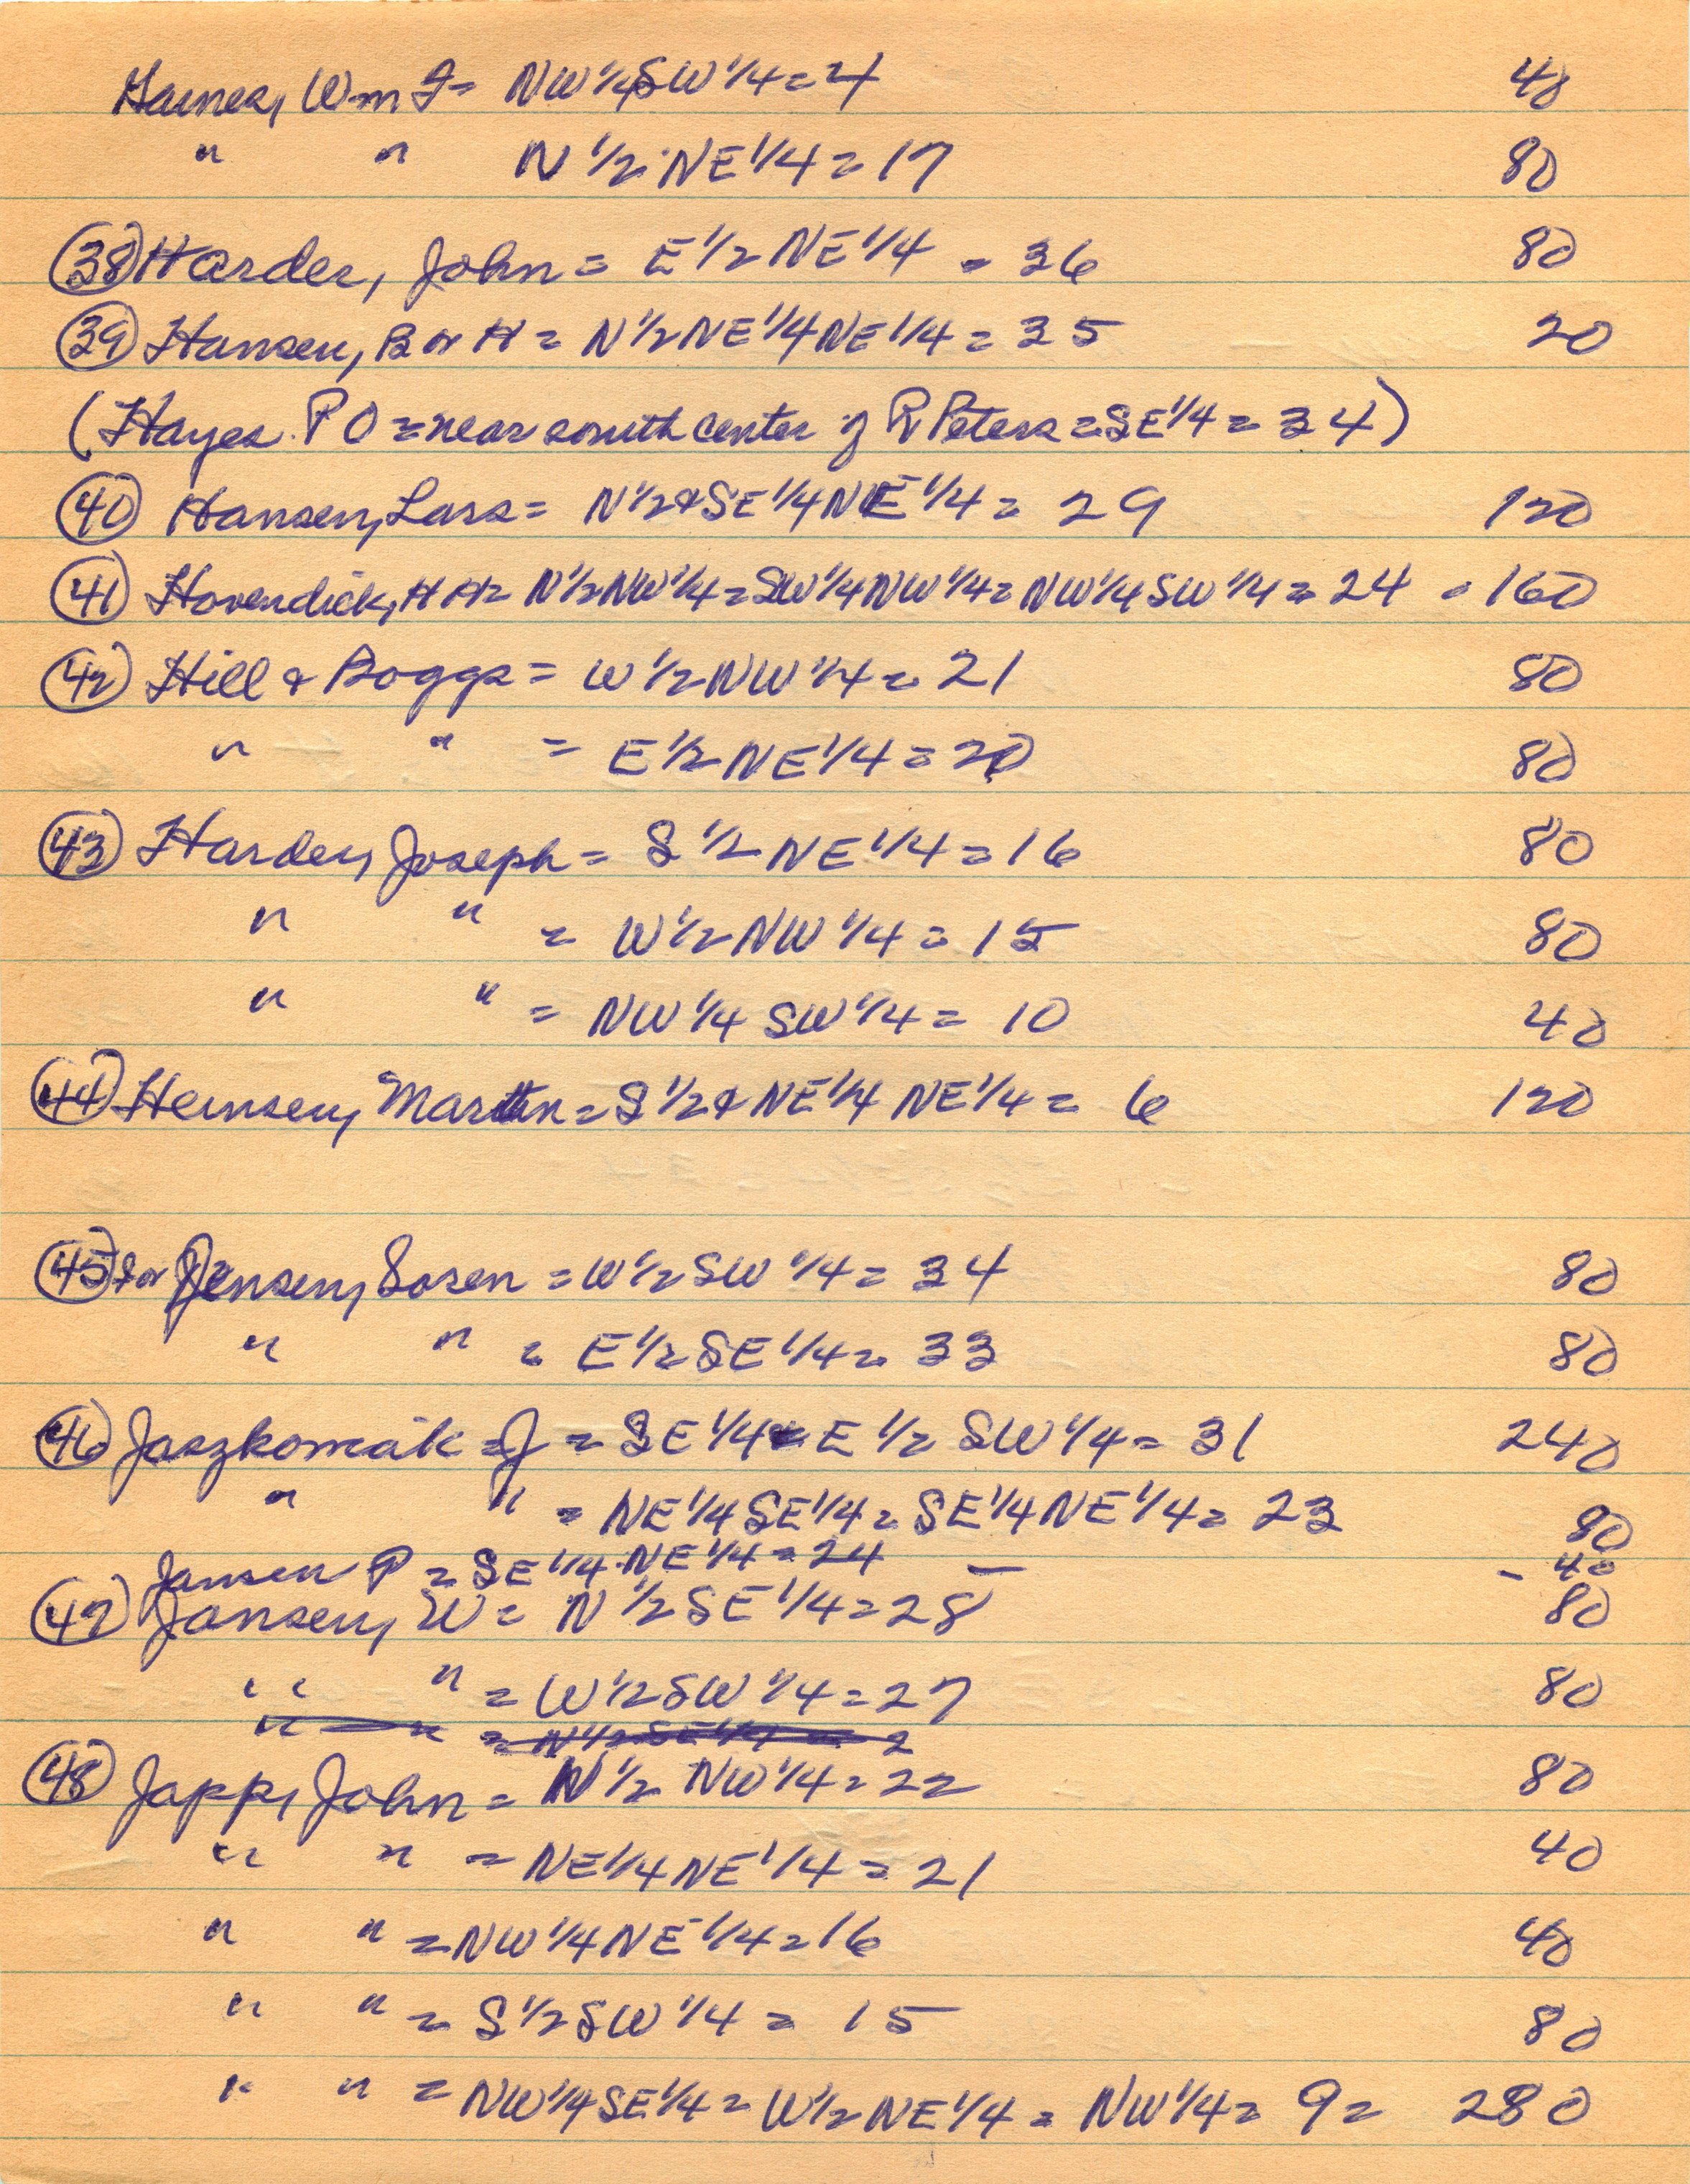 Haines, Wm F= NW¼SW¼=4 48
" " N½ NE¼=17 80
(38) Harder, John = E½ NE¼ = 36 80
(39) Hansen, B or H = N½NE¼NE¼ = 35 20
(Hayes P O = near south center of R Peters = SE¼ = 34)
(40) Hansen, Lars = N½&SE¼NE¼ = 29 120
(41) Hovendick, H H= N½NW¼=SW¼NW¼=NW¼SW¼= 24 = 160
(42) Hill & Boggs = W½NW¼ = 21 80
" " = E½NE¼ = 20 80
(43) Harder, Joseph = S½ NE¼=16 80
" " = W½NW¼ = 15 80
" " = NW¼ SW¼ = 10 40
(44) Hemsen, Martin = S½& NE¼ NE¼ = 6 120
(45) Jensen, Soren = W½SW¼ = 34 80
" " = E½SE¼ = 33 80
(46) Jaszkomcak = J = SE¼ E½ SW¼ = 31 240
" " = NE¼SE¼ = SE¼NE¼ = 23 80
Jansen P = SE¼ NE¼ = 24 - 40
(47) Jansen, W = N½SE¼ = 28 80
" " = W½SW¼ = 27 80
" " = N½ SE¼ = 2
(48) Japp, John = N½ NW¼ = 22 80
" " = NE¼NE¼ = 21 40
" " = NW¼NE¼ = 16 40
" " = S½SW¼ = 15 80
" " = NW¼SE¼ = W½NE¼ = NW¼ = 9 = 280